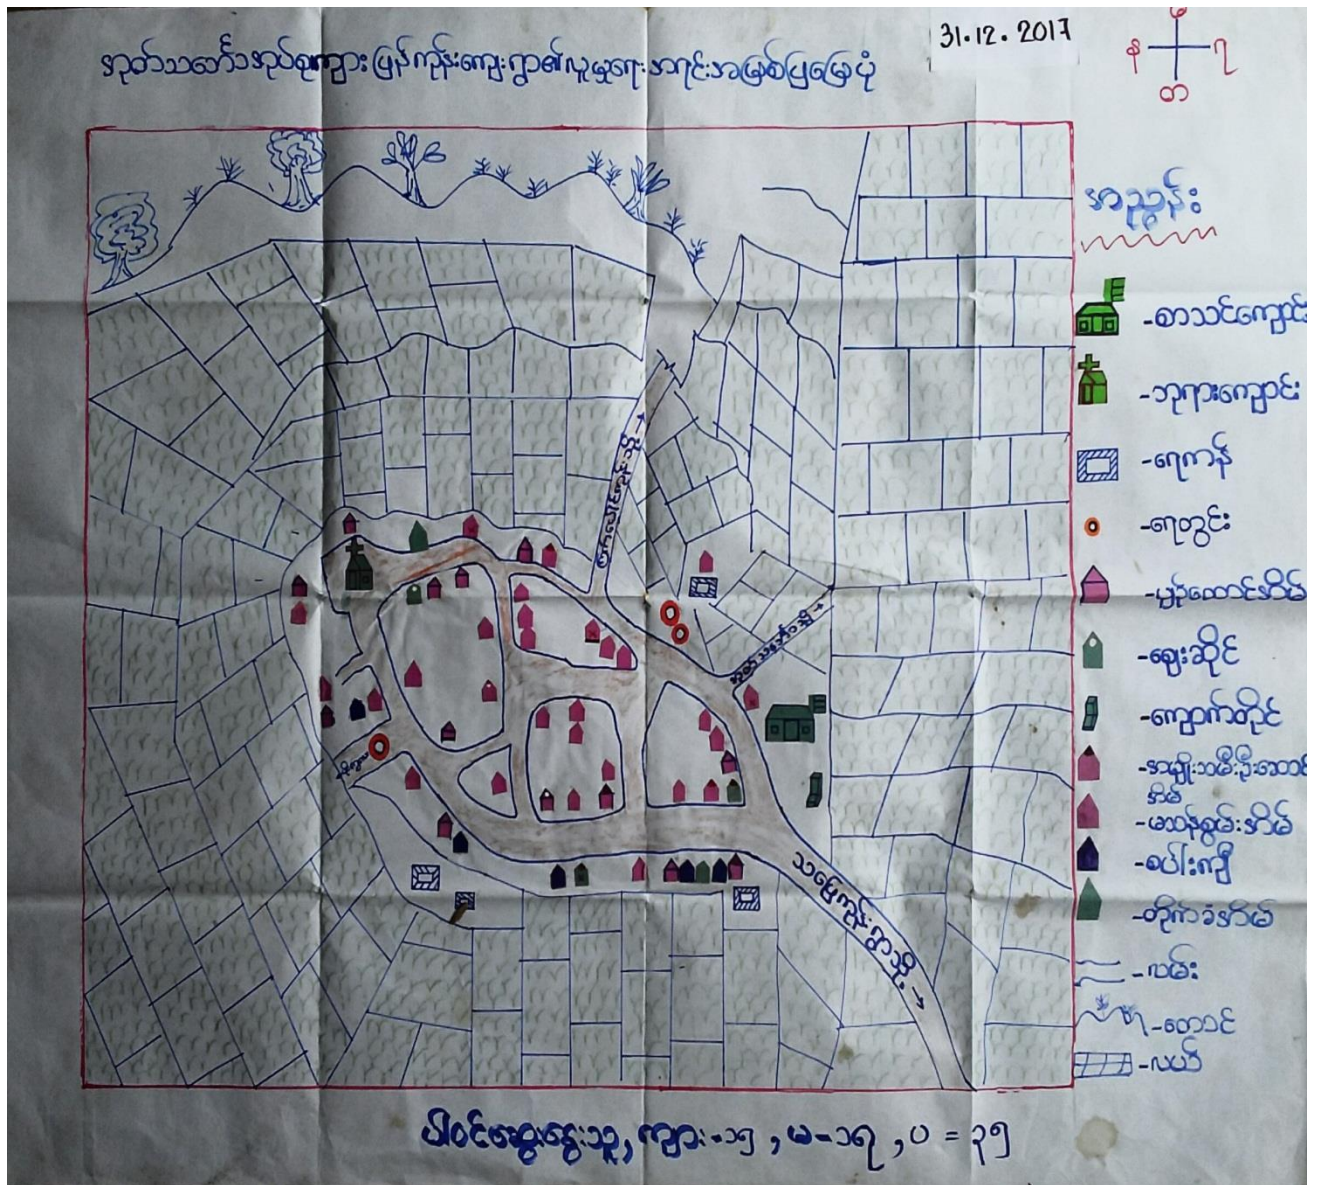 အုတ်သဘော်အုပ်စု၊ ကျားပြန်ကုန်းကျေးရွာ၏လူမှုရေးအရင်းအမြစ်ပြမြေပုံ
31.12.2017
မ
န ရ
တ
အညွှန်း
-စာသင်ကျောင်း
-ဘုရားကျောင်း
-ရေကန်
-ရေတွင်း
-ပျဉ်ထောင်အိမ်
-ဈေးဆိုင်
-ကျောက်တိုင်
-အမျိုးသမီးဦးဆောင်
အိမ်
-မသန်စွမ်းအိမ်
-စပါးကျီ
-တိုက်ခံအိမ်
-လမ်း
-တောင်
-လယ်
သပြေကုန်းရွာသို့ →
ပါဝင်ဆွေးနွေးသူ, ကျား-၁၅, မ-၁၇, ပ = ၃၅